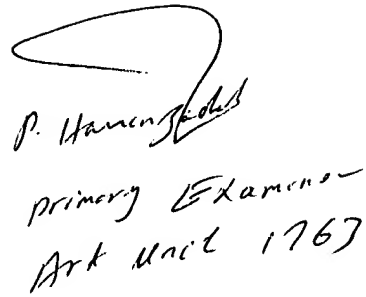 P. Hassanzadeh
Primary Examiner
Art Unit 1763